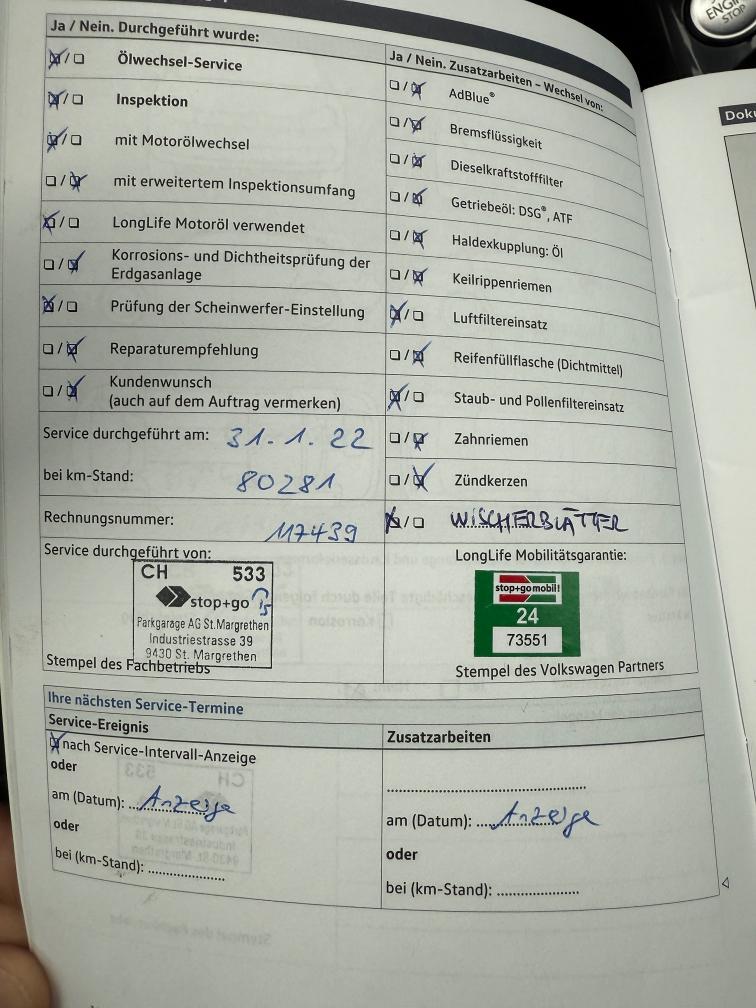 ENGINE
STOP
Doku
Ja / Nein. Durchgeführt wurde:
☒/☐ Ölwechsel-Service
☒/☐ Inspektion
☒/☐ mit Motorölwechsel
☐/☒ mit erweitertem Inspektionsumfang
☒/☐ LongLife Motoröl verwendet
☐/☒ Korrosions- und Dichtheitsprüfung der
Erdgasanlage
☒/☐ Prüfung der Scheinwerfer-Einstellung
☐/☒ Reparaturempfehlung
☐/☒ Kundenwunsch
(auch auf dem Auftrag vermerken)
Service durchgeführt am: 31.1.22
bei km-Stand: 80281
Rechnungsnummer: 117439
Service durchgeführt von:
CH 533
stop+go
Parkgarage AG St.Margrethen
Industriestrasse 39
9430 St. Margrethen
Stempel des Fachbetriebs
Ja / Nein. Zusatzarbeiten – Wechsel von:
☐/☒ AdBlue®
☐/☒ Bremsflüssigkeit
☐/☒ Dieselkraftstofffilter
☐/☒ Getriebeöl: DSG®, ATF
☐/☒ Haldexkupplung: Öl
☐/☒ Keilrippenriemen
☒/☐ Luftfiltereinsatz
☐/☒ Reifenfüllflasche (Dichtmittel)
☒/☐ Staub- und Pollenfiltereinsatz
☐/☒ Zahnriemen
☐/☒ Zündkerzen
☒/☐ WISCHERBLÄTTER
LongLife Mobilitätsgarantie:
stop+go mobil!
24
73551
Stempel des Volkswagen Partners
Ihre nächsten Service-Termine
Service-Ereignis
☒ nach Service-Intervall-Anzeige
oder
am (Datum): Anzeige
oder
bei (km-Stand): ....................
Zusatzarbeiten
am (Datum): Anzeige
oder
bei (km-Stand): ....................